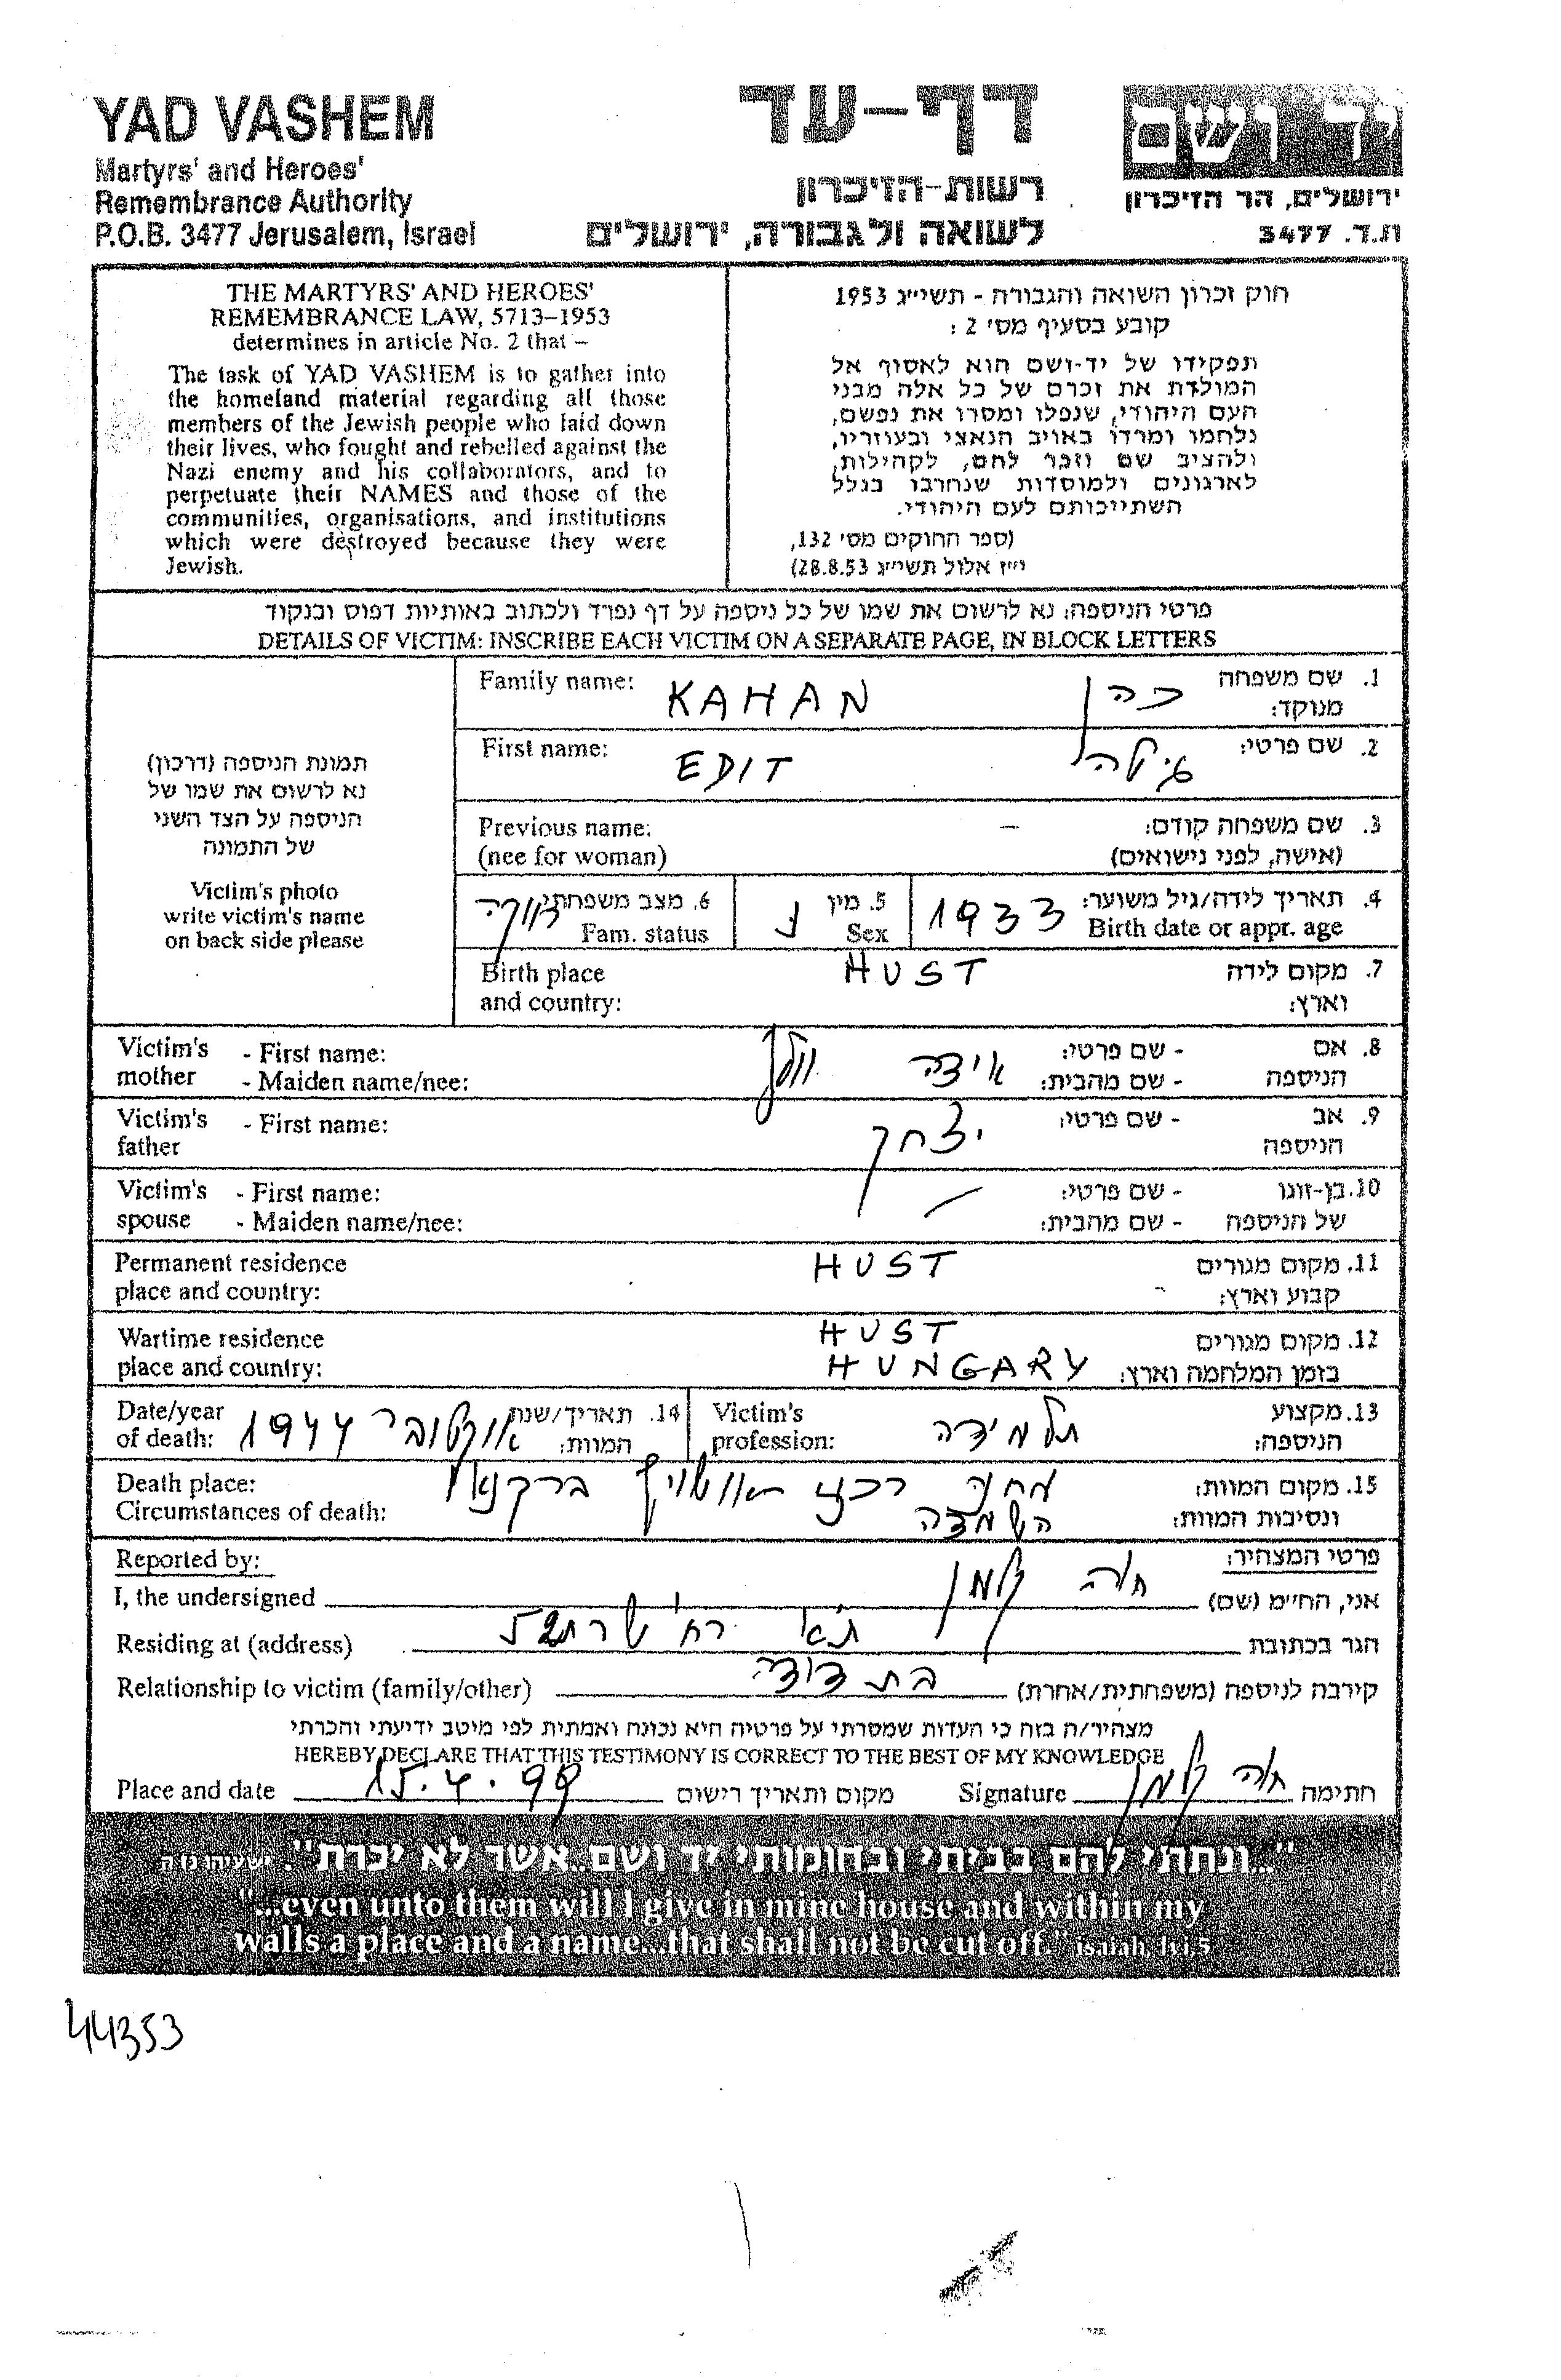 YAD VASHEM
Martyrs' and Heroes'
Remembrance Authority
P.O.B. 3477 Jerusalem, Israel
דף-עד
רשות-הזיכרון
לשואה ולגבורה, ירושלים
יד ושם
ירושלים, הר הזיכרון
ת.ד. 3477
THE MARTYRS' AND HEROES'
REMEMBRANCE LAW, 5713–1953
determines in article No. 2 that –
The task of YAD VASHEM is to gather into
the homeland material regarding all those
members of the Jewish people who laid down
their lives, who fought and rebelled against the
Nazi enemy and his collaborators, and to
perpetuate their NAMES and those of the
communities, organisations, and institutions
which were destroyed because they were
Jewish.
חוק זכרון השואה והגבורה - תשי״ג 1953
קובע בסעיף מס׳ 2 :
תפקידו של יד-ושם הוא לאסוף אל
המולדת את זכרם של כל אלה מבני
העם היהודי, שנפלו ומסרו את נפשם,
נלחמו ומרדו באויב הנאצי ובעוזריו,
ולהציב שם וזכר להם, לקהילות,
לארגונים ולמוסדות שנחרבו בגלל
השתייכותם לעם היהודי.
(ספר החוקים מס׳ 132,
י״ז אלול תשי״ג 28.8.53)
פרטי הניספה: נא לרשום את שמו של כל ניספה על דף נפרד ולכתוב באותיות דפוס ובנקוד
DETAILS OF VICTIM: INSCRIBE EACH VICTIM ON A SEPARATE PAGE, IN BLOCK LETTERS
תמונת הניספה (דרכון)
נא לרשום את שמו של
הניספה על הצד השני
של התמונה
Victim's photo
write victim's name
on back side please
Family name: KAHAN כהן 1. שם משפחה
מנוקד:
First name: EDIT גילה 2. שם פרטי:
Previous name: – 3. שם משפחה קודם:
(nee for woman) (אישה, לפני נישואים)
4. תאריך לידה/גיל משוער: 1933 5. מין נ 6. מצב משפחתי רווקה
Birth date or appr. age Sex Fam. status
Birth place HUST 7. מקום לידה
and country: וארץ:
Victim's - First name: 8. אם - שם פרטי: אידה
mother - Maiden name/nee: הניספה - שם מהבית:
Victim's - First name: יצחק 9. אב - שם פרטי:
father הניספה
Victim's - First name: – 10. בן-זוגו - שם פרטי:
spouse - Maiden name/nee: של הניספה - שם מהבית:
Permanent residence HUST 11. מקום מגורים
place and country: קבוע וארץ:
Wartime residence HUST 12. מקום מגורים
place and country: HUNGARY בזמן המלחמה וארץ:
Date/year 14. תאריך/שנת
of death: המוות: אוקטובר 1944
Victim's 13. מקצוע
profession: תלמידה הניספה:
Death place: 15. מקום המוות: מחנה רכוז אושויץ ברקנאו
Circumstances of death: ונסיבות המוות: השמדה
Reported by: פרטי המצהיר:
I, the undersigned חוה אני, החי״מ (שם)
Residing at (address) ת״א רח׳ הגר בכתובת
Relationship to victim (family/other) בת דודה קירבה לניספה (משפחתית/אחרת)
מצהיר/ה בזה כי העדות שמסרתי על פרטיה היא נכונה ואמתית לפי מיטב ידיעתי והכרתי
HEREBY DECLARE THAT THIS TESTIMONY IS CORRECT TO THE BEST OF MY KNOWLEDGE
Place and date 15.4.99 מקום ותאריך רישום Signature חוה חתימה
"...ונתתי להם בביתי ובחומותי יד ושם...אשר לא יכרת". ישעיהו נו ה
"...even unto them will I give in mine house and within my
walls a place and a name...that shall not be cut off." Isaiah, lvi,5
44353